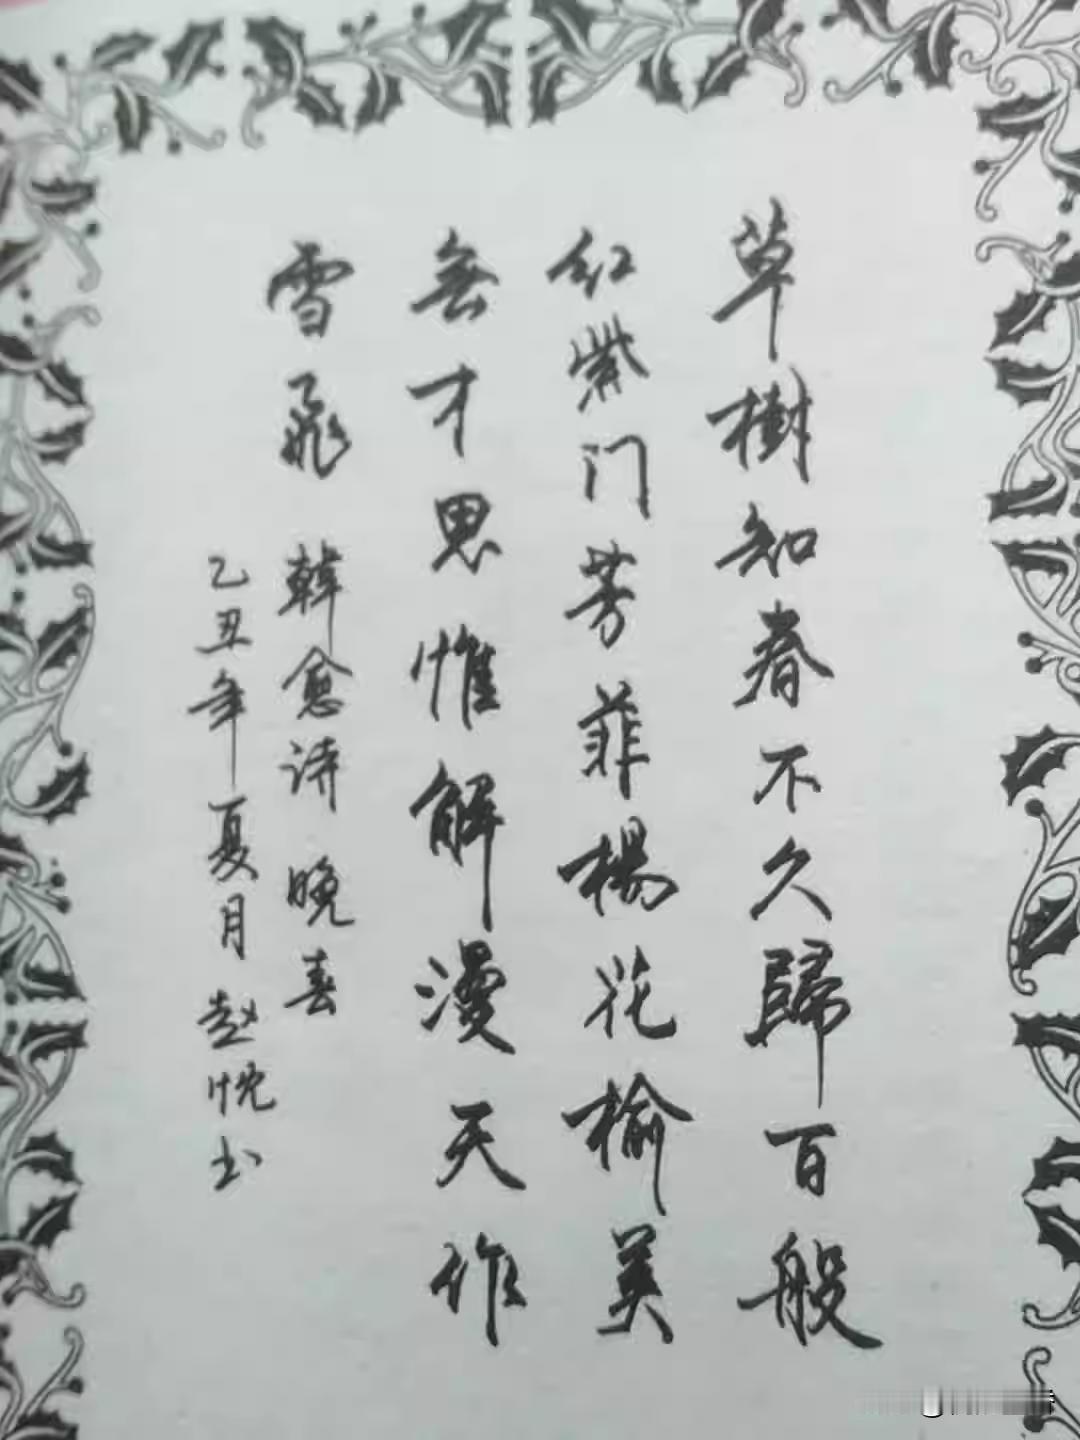 草樹知春不久歸百般
红紫门芳菲楊花榆英
無才思惟解漫天作
雪飛 韓愈诗 晚春
乙丑年夏月 赵悦书